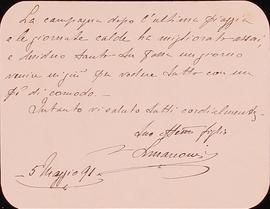 La campagna dopo l'ultima pioggia
e le giornate calde ha migliorato assai,
e desidero tanto Lu possa un giorno
venire in giù per vedere tutto con un
pò di comodo. -
Intanto vi saluto tutti cordialmente,
Suo figlio
5 Maggio 91 -